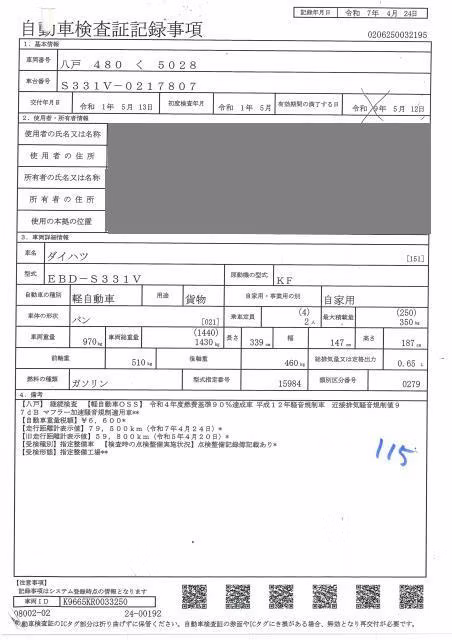 記録年月日 令和 7年 4月 24日
自動車検査証記録事項
0206250032195
1. 基本情報
車両番号 八戸 480 く 5028
車台番号 S331V-0217807
交付年月日 令和 1年 5月 13日 初度検査年月 令和 1年 5月 有効期間の満了する日 令和 9年 5月 12日
2. 使用者・所有者情報
使用者の氏名又は名称
使用者の住所
所有者の氏名又は名称
所有者の住所
使用の本拠の位置
3. 車両詳細情報
車名 ダイハツ [151]
型式 EBD-S331V 原動機の型式 KF
自動車の種別 軽自動車 用途 貨物 自家用・事業用の別 自家用
車体の形状 バン [021] 乗車定員 (4) 2人 最大積載量 (250) 350kg
車両重量 970kg 車両総重量 (1440) 1430kg 長さ 339cm 幅 147cm 高さ 187cm
前軸重 510kg 後軸重 460kg 総排気量又は定格出力 0.65 L
燃料の種類 ガソリン 型式指定番号 15984 類別区分番号 0279
4. 備考
【八戸】 継続検査 【軽自動車OSS】 令和4年度燃費基準90%達成車 平成12年騒音規制車 近接排気騒音規制値9
7dB マフラー加速騒音規制適用車**
【自動車重量税額】¥6,600*
【走行距離計表示値】79,500km(令和7年4月24日)*
【旧走行距離計表示値】59,800km(令和5年4月20日)*
【受検種別】指定整備車 【検査時の点検整備実施状況】点検整備記録簿記載あり*
【受検形態】指定整備工場**
115
【注意事項】
記録事項はシステム登録時点の情報となります
車両ID K9665KR0033250
08002-02 24-00192
自動車検査証のICタグ部分は折り曲げずに保管ください。自動車検査証の券面やICタグにき損がある場合、無効となり再交付が必要です。